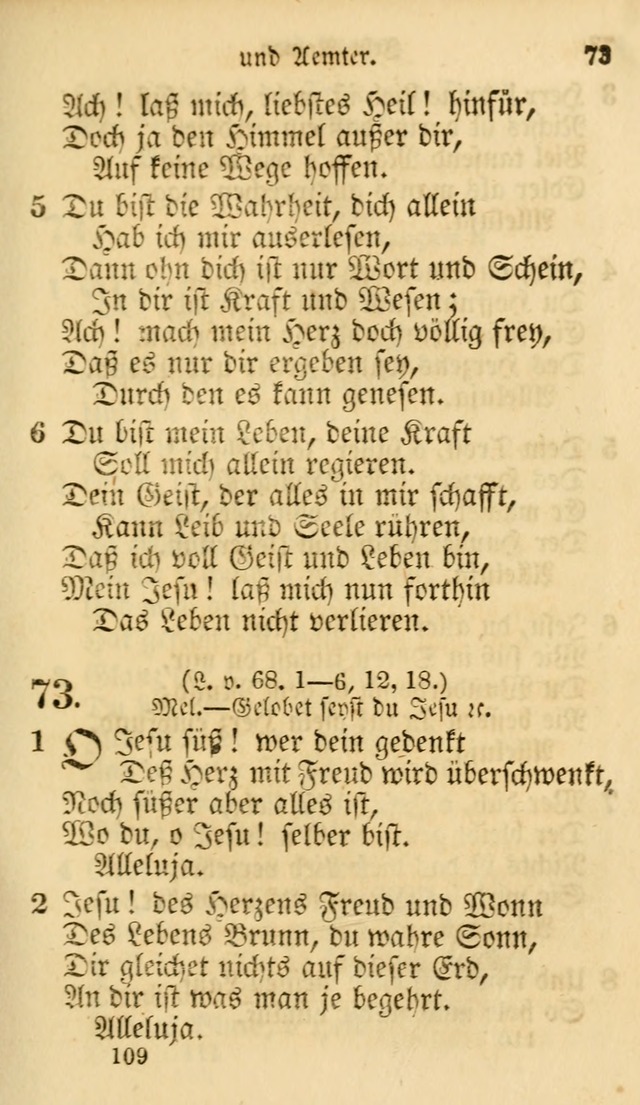 und Aemter. 73
Ach! laß mich, liebstes Heil! hinfür,
Doch ja den Himmel außer dir,
Auf keine Wege hoffen.
5 Du bist die Wahrheit, dich allein
Hab ich mir auserlesen,
Dann ohn dich ist nur Wort und Schein,
In dir ist Kraft und Wesen;
Ach! mach mein Herz doch völlig frey,
Daß es nur dir ergeben sey,
Durch den es kann genesen.
6 Du bist mein Leben, deine Kraft
Soll mich allein regieren.
Dein Geist, der alles in mir schafft,
Kann Leib und Seele rühren,
Daß ich voll Geist und Leben bin,
Mein Jesu! laß mich nun forthin
Das Leben nicht verlieren.
73. (L. v. 68. 1—6, 12, 18.)
Mel.—Gelobet seyst du Jesu ꝛc.
1 O Jesu süß! wer dein gedenkt
Deß Herz mit Freud wird überschwenkt,
Noch süßer aber alles ist,
Wo du, o Jesu! selber bist.
Alleluja.
2 Jesu! des Herzens Freud und Wonn
Des Lebens Brunn, du wahre Sonn,
Dir gleichet nichts auf dieser Erd,
An dir ist was man je begehrt.
Alleluja.
109